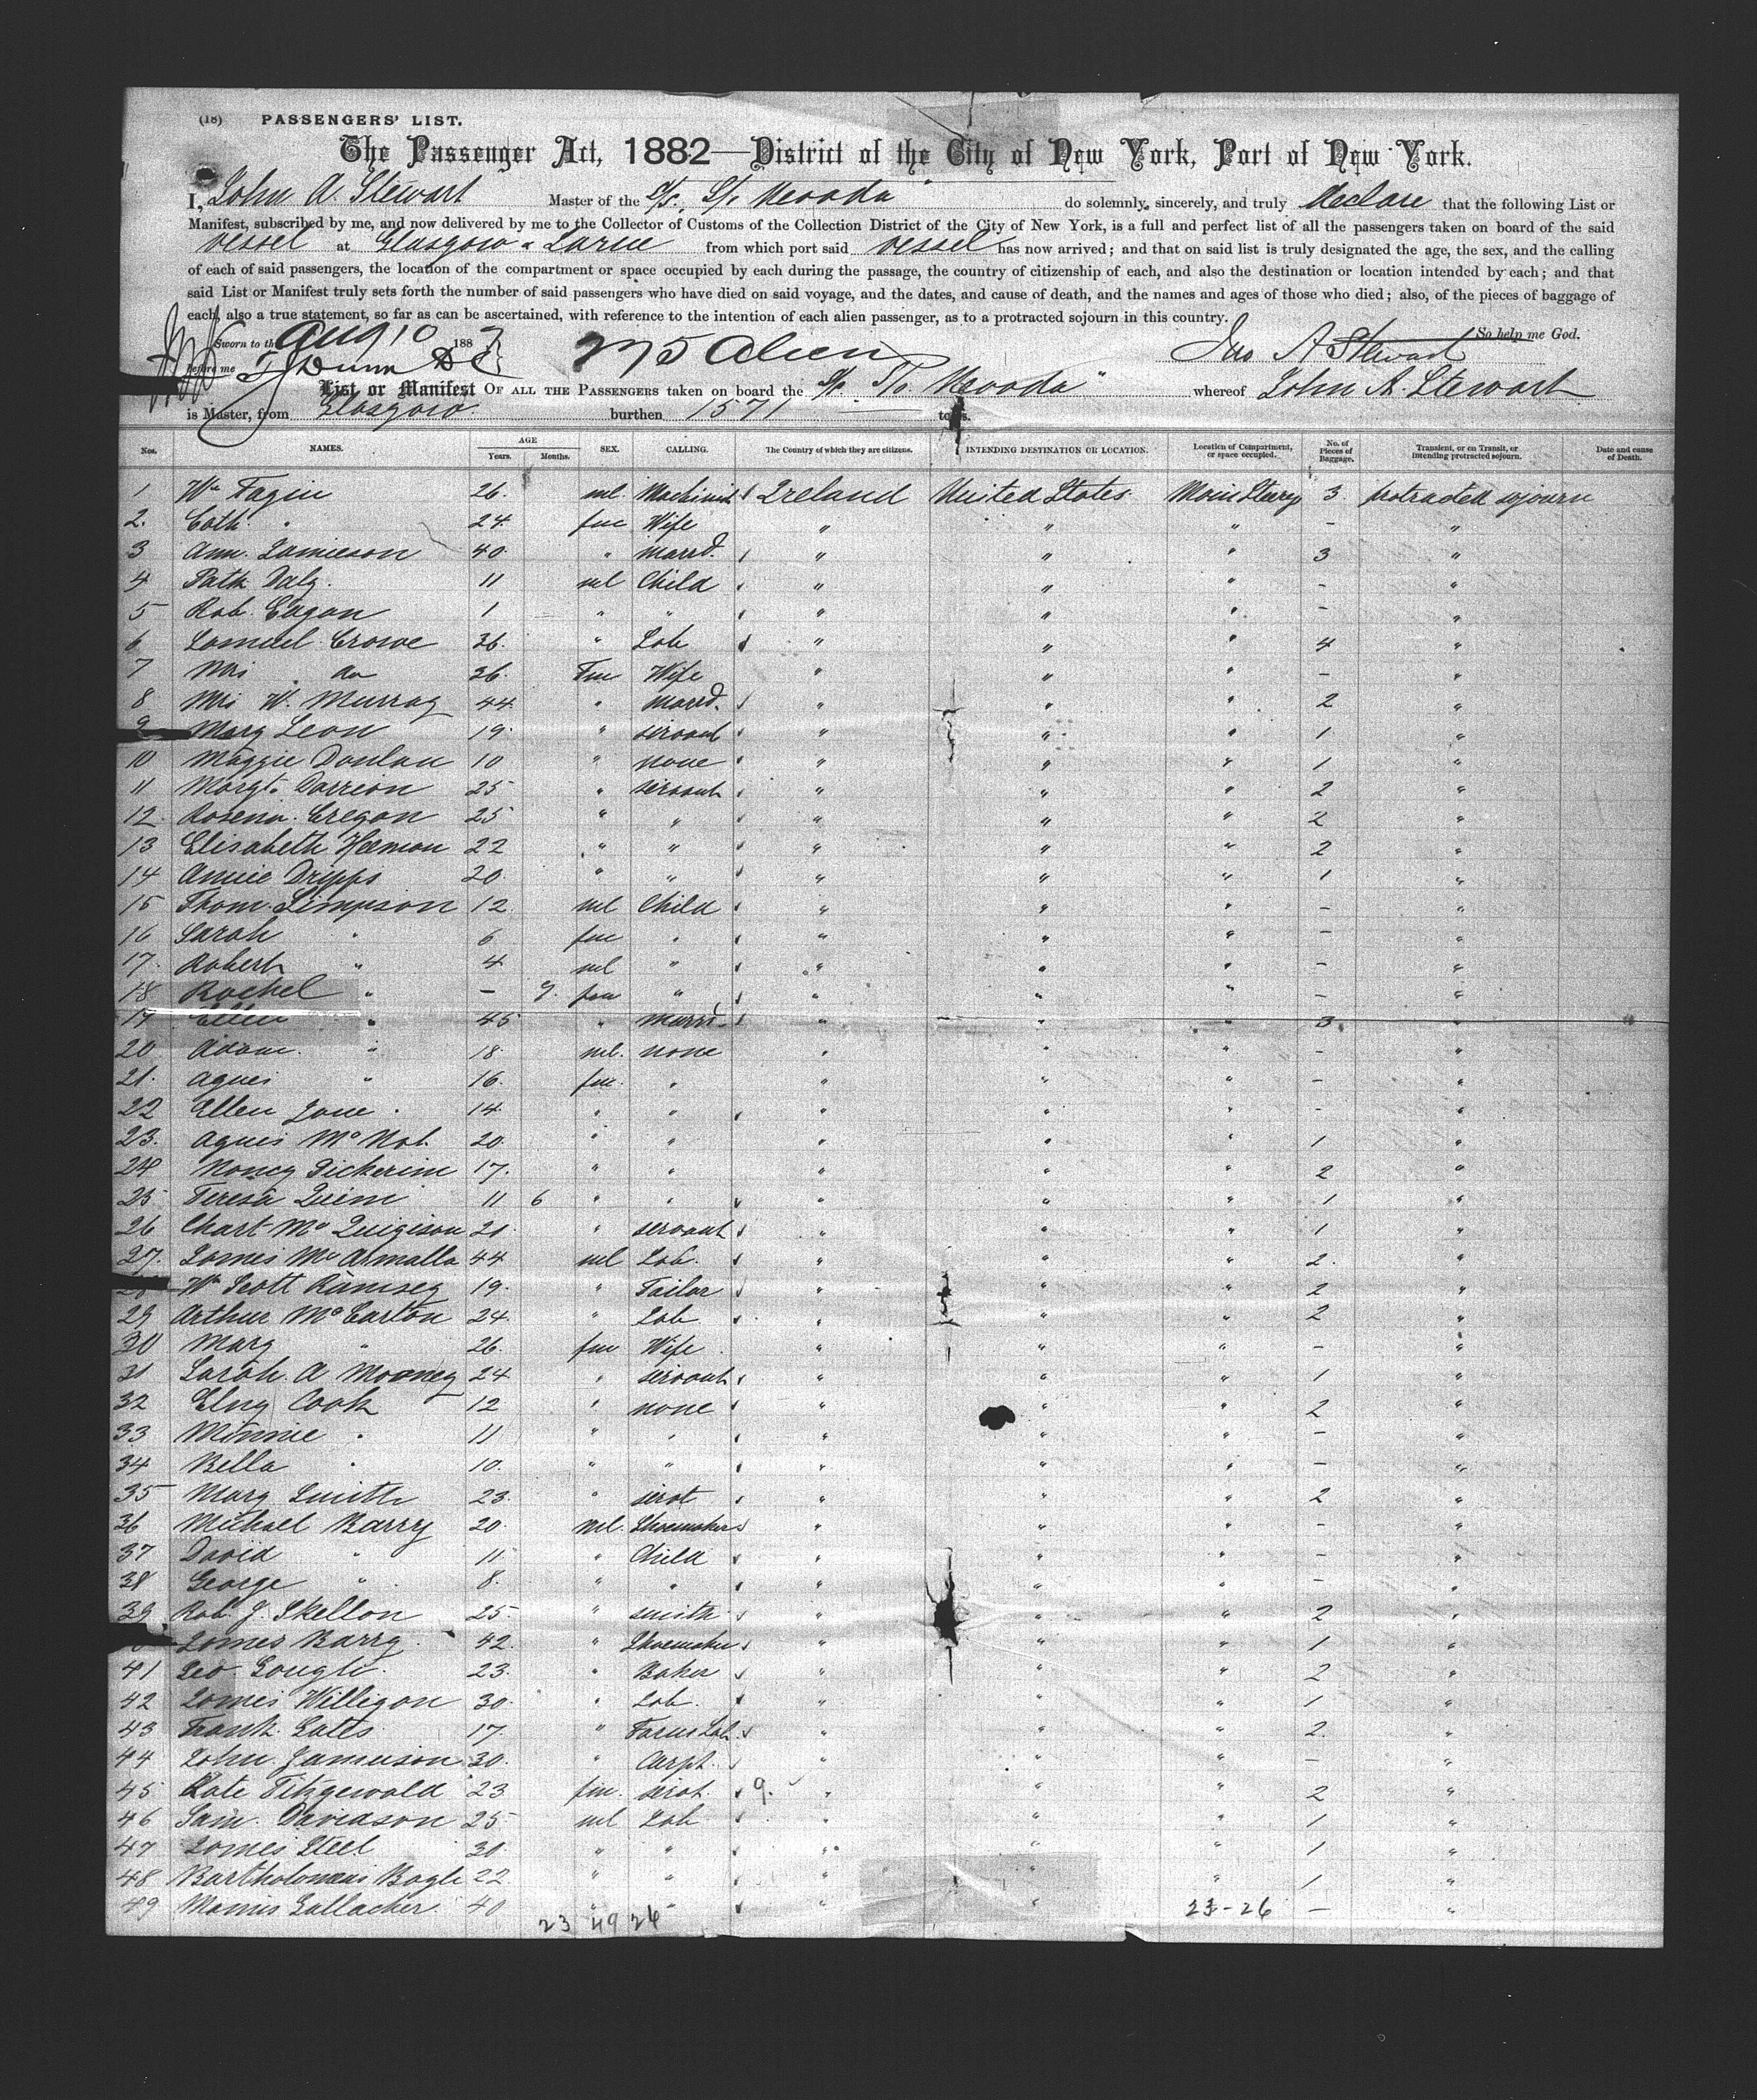 (18) PASSENGERS' LIST.
The Passenger Act, 1882—District of the City of New York, Port of New York.
I, John A. Stewart Master of the S/s. "S/o Nevada" do solemnly, sincerely, and truly declare that the following List or
Manifest, subscribed by me, and now delivered by me to the Collector of Customs of the Collection District of the City of New York, is a full and perfect list of all the passengers taken on board of the said
vessel at Glasgow & Larne from which port said vessel has now arrived; and that on said list is truly designated the age, the sex, and the calling
of each of said passengers, the location of the compartment or space occupied by each during the passage, the country of citizenship of each, and also the destination or location intended by each; and that
said List or Manifest truly sets forth the number of said passengers who have died on said voyage, and the dates, and cause of death, and the names and ages of those who died; also, of the pieces of baggage of
each, also a true statement, so far as can be ascertained, with reference to the intention of each alien passenger, as to a protracted sojourn in this country.
So help me God.
Sworn to th Aug 10 188 Jno A Stewart
before me Dunn
275 Alien
List or Manifest OF ALL THE PASSENGERS taken on board the Nevada" whereof John A. Stewart
is Master, from Glasgow burthen 1571 tons.
Nos. NAMES. AGE Years. Months. SEX. CALLING. The Country of which they are citizens. INTENDING DESTINATION OR LOCATION. Location of Compartment, or space occupied. No. of Pieces of Baggage. Transient, or on Transit, or intending protracted sojourn. Date and cause of Death.
1 Wm Fagin 26. ml Machinist Ireland United States Main Steerg 3 protracted sojourn
2. Cath. " 24. fme Wife " " " - "
3 Ann. Jamieson 40. " marrd. " " " 3 "
4 Patk Daly. 11 ml Child " " " - "
5 Rob. Eagan 1 " " " " " - "
6 Samuel Crowe 36. " Lab " " " 4 "
7 Mrs do 36. Fme Wife " " " - "
8 Mrs W. Murray 44. " marrd. " " " 2 "
9 Mary Leon 19. " servant " " " 1 "
10 Maggie Donlan 10 " none " " " 1 "
11 Margt. Darrion 25 " servant " " " 2 "
12. Rosena Cregan 25 " " " " " 2 "
13 Elisabeth Heemon 22 " " " " " 2 "
14 Annie Dripps 20. " " " " " 1 "
15 Thom. Simpson 12 ml Child " " " - "
16 Sarah " 6 fme " " " " - "
17. Robert " 4 ml " " " " - "
18 Rachel " - 9. fme " " " " - "
19 Ellen " 45 " marrd. " " " 3 "
20 Adam. " 18. ml. none " " " - "
21. Agnes " 16. fme. " " " " - "
22 Ellen Jane " 14. " " " " " - "
23. Agnes McNab 20. " " " " " 1 "
24 Nancy Pickerin 17. " " " " " 2 "
25 Teresa Quinn 11 6 " " " " " 1 "
26 Chart McQuigison 21. " servant " " " 1 "
27. James McAlmalla 44 ml Lab. " " " 2. "
28 Wm Scott Ramsey 19. " Tailor " " " 2 "
29 Arthur McCarton 24. " Lab " " " 2 "
30 Mary " 26. fme Wife " " " - "
31 Sarah. A Mooney 24 " servant " " " 1 "
32 Cook 12 " none " " " 2 "
33 Minnie " 11 " " " " " - "
34 Bella " 10. " " " " " - "
35 Mary Smith 23. " servt " " " 2 "
36 Michael Barry 20. ml. Shoemaker " " " - "
37 David " 11 " Child " " " - "
38 George " 8. " " " " " - "
39 Rob. J. Skellon 25. " smith " " " 2 "
James Barry. 42. " Shoemaker " " " 1 "
41 Geo Gough. 23. " Baker " " " 2 "
42 James Willigan 30. " Lab. " " " 1 "
43 Frank Gates 17. " Farm Lab. " " " 2. "
44 John Jamieson 30. " Carpt. " " " - "
45 Kate Fitzgewald 23 fme. servt. 9. " " " 2 "
46 Sam. Davidson 25 ml Lab " " " 1 "
47 James Steel 30. " " " " " 1 "
48 Bartholomew Bogle 22 " " " " " 1 "
49 Mannis Gallacher. 40 " " " " 23-26 - "
23 49 26